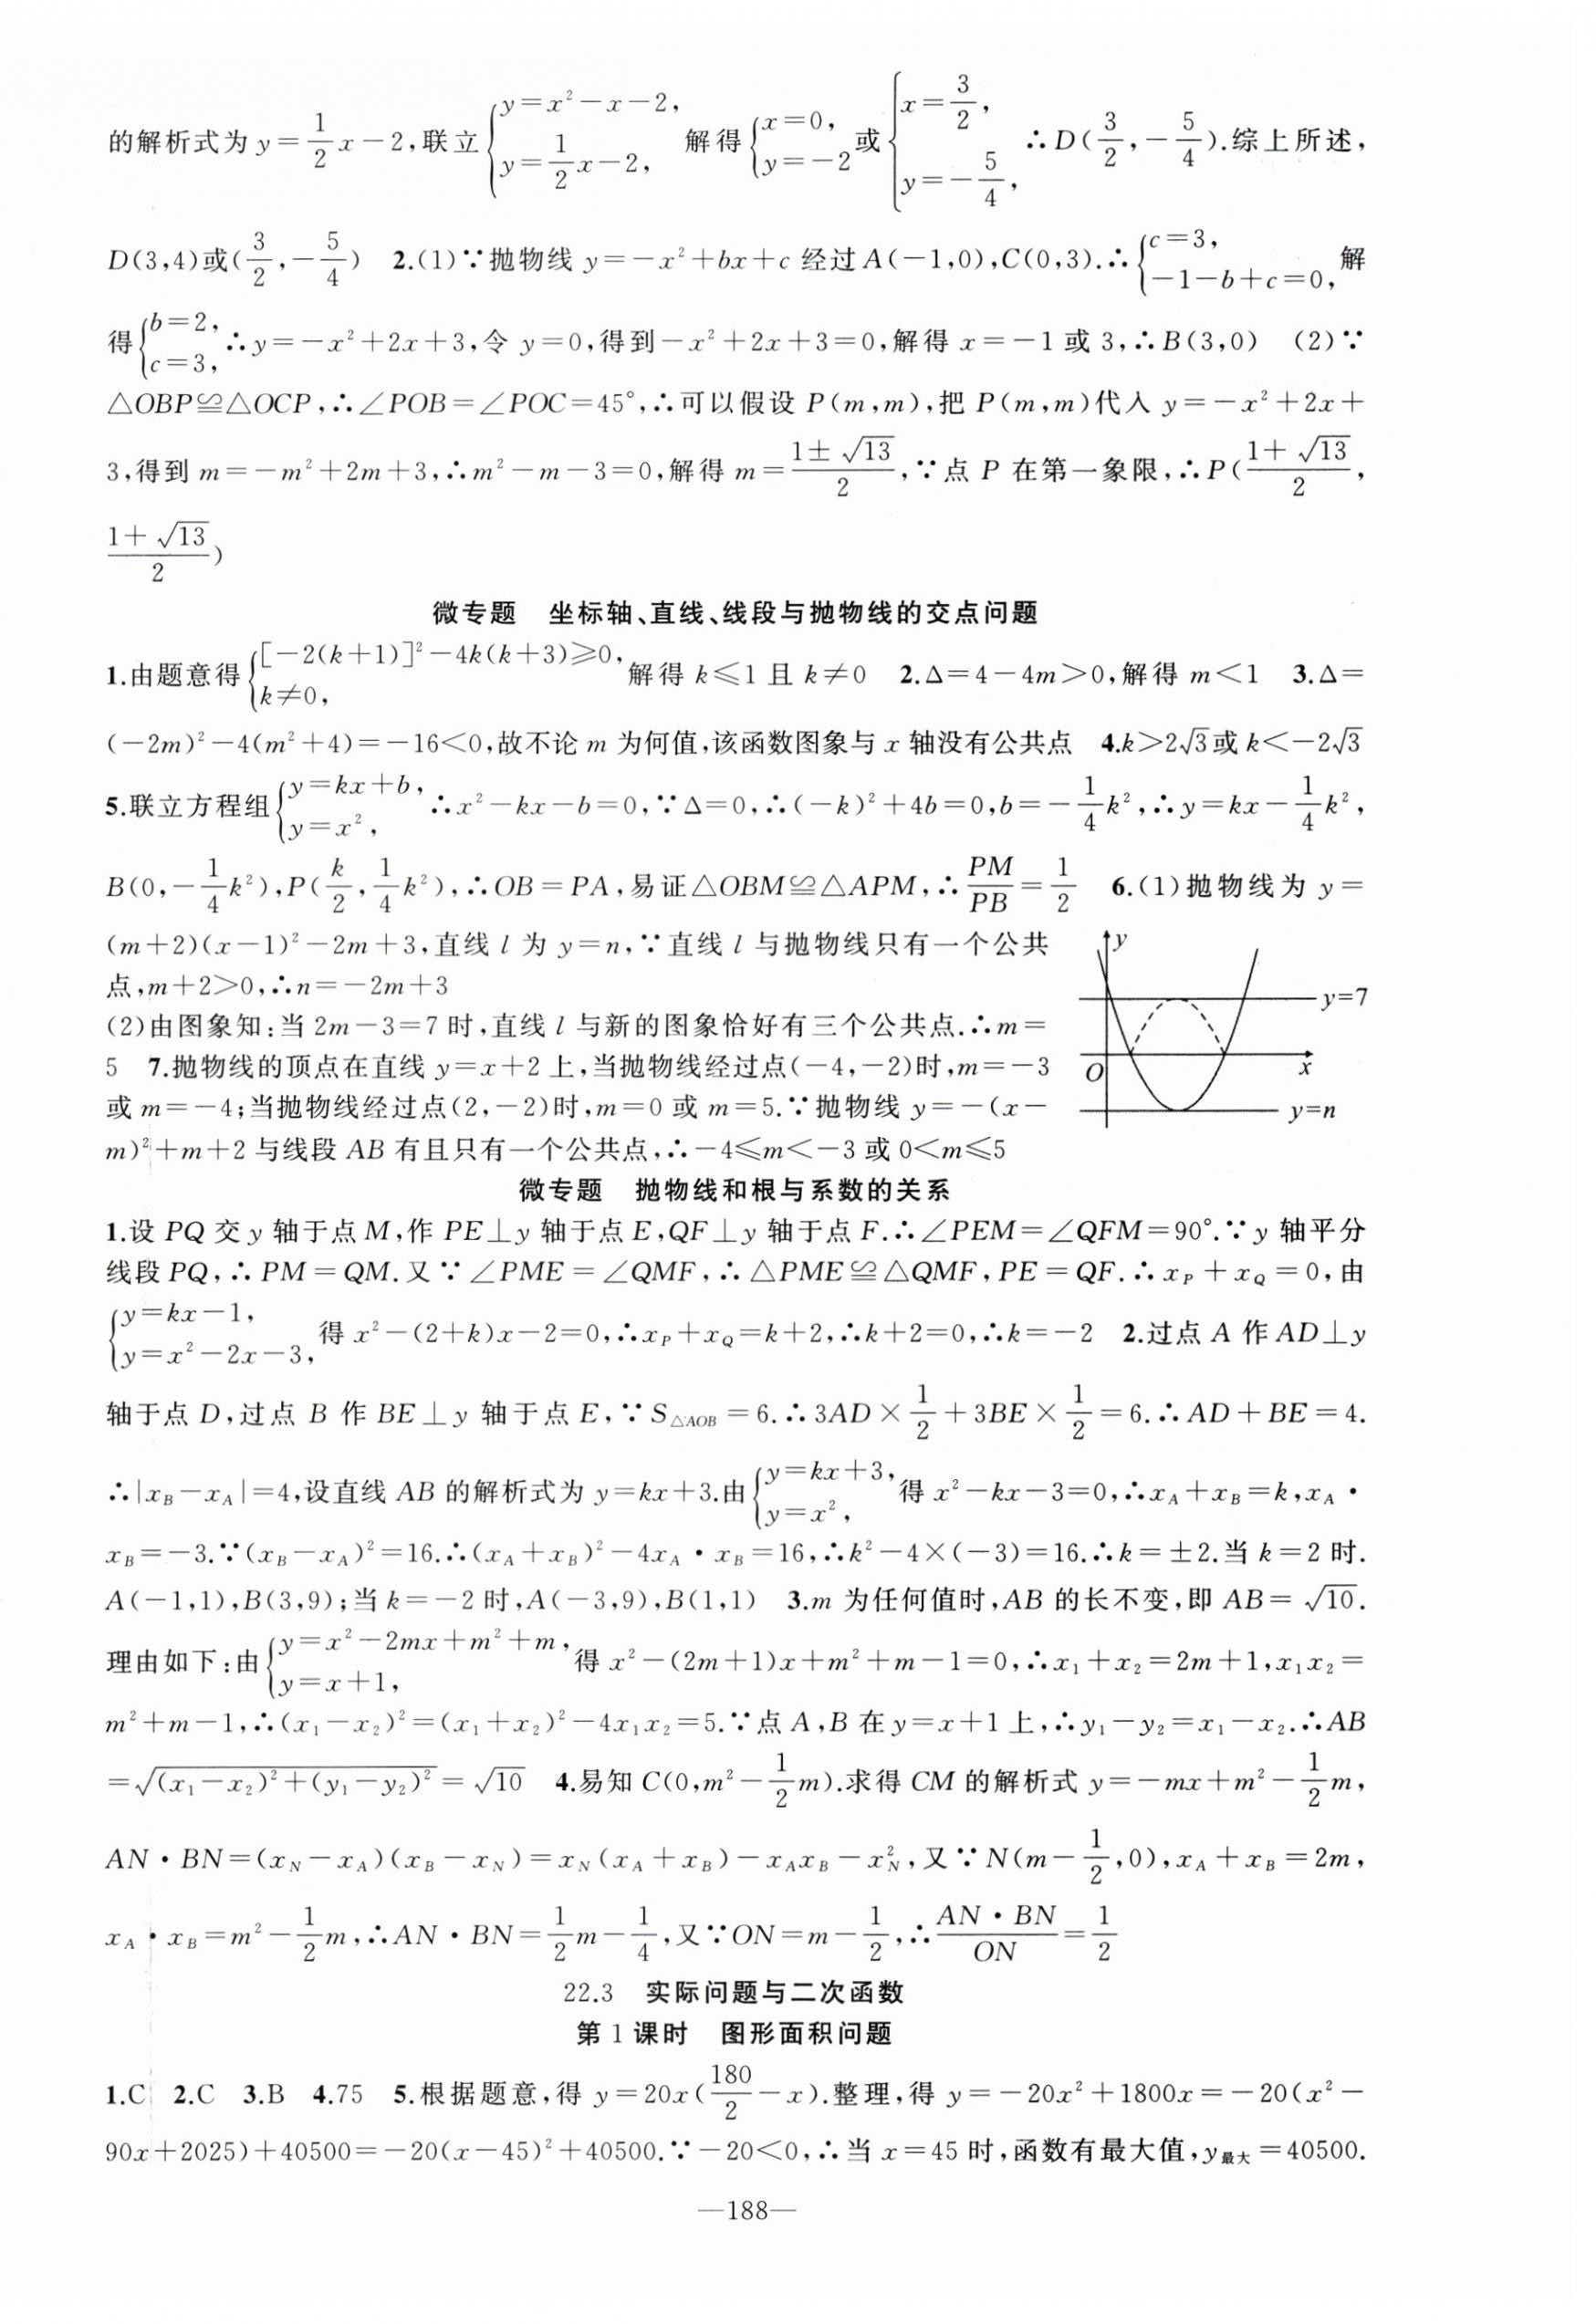 的解析式为 y=\frac{1}{2}x-2,联立{y=x²-x-2, y=\frac{1}{2}x-2, 解得{x=0, y=-2 或{x=\frac{3}{2}, y=-\frac{5}{4}, ∴D(\frac{3}{2},-\frac{5}{4}).综上所述,
D(3,4)或(\frac{3}{2},-\frac{5}{4}) 2.(1)∵抛物线 y=-x²+bx+c 经过A(-1,0),C(0,3).∴{c=3, -1-b+c=0, 解
得{b=2, c=3, ∴y=-x²+2x+3,令 y=0,得到-x²+2x+3=0,解得 x=-1 或 3,∴B(3,0) (2)∵
△OBP≌△OCP,∴∠POB=∠POC=45°,∴可以假设 P(m,m),把 P(m,m)代入 y=-x²+2x+
3,得到 m=-m²+2m+3,∴m²-m-3=0,解得 m=\frac{1±√13}{2},∵点 P 在第一象限,∴P(\frac{1+√13}{2},
\frac{1+√13}{2})
微专题 坐标轴、直线、线段与抛物线的交点问题
1.由题意得{[-2(k+1)]²-4k(k+3)≥0, k≠0, 解得 k≤1 且 k≠0 2.Δ=4-4m>0,解得 m<1 3.Δ=
(-2m)²-4(m²+4)=-16<0,故不论 m 为何值,该函数图象与 x 轴没有公共点 4.k>2√3或 k<-2√3
5.联立方程组{y=kx+b, y=x², ∴x²-kx-b=0,∵Δ=0,∴(-k)²+4b=0,b=-\frac{1}{4}k²,∴y=kx-\frac{1}{4}k²,
B(0,-\frac{1}{4}k²),P(\frac{k}{2},\frac{1}{4}k²),∴OB=PA,易证△OBM≌△APM,∴\frac{PM}{PB}=\frac{1}{2} 6.(1)抛物线为 y=
(m+2)(x-1)²-2m+3,直线 l 为 y=n,∵直线 l 与抛物线只有一个公共
点,m+2>0,∴n=-2m+3
(2)由图象知:当 2m-3=7 时,直线 l 与新的图象恰好有三个公共点.∴m=
5 7.抛物线的顶点在直线 y=x+2 上,当抛物线经过点(-4,-2)时,m=-3
或 m=-4;当抛物线经过点(2,-2)时,m=0 或 m=5.∵抛物线 y=-(x-
m)²+m+2 与线段 AB 有且只有一个公共点,∴-4≤m<-3 或 0<m≤5
y
y=7
O
x
y=n
微专题 抛物线和根与系数的关系
1.设 PQ 交 y 轴于点 M,作 PE⊥y 轴于点 E,QF⊥y 轴于点 F.∴∠PEM=∠QFM=90°.∵y 轴平分
线段 PQ,∴PM=QM.又∵∠PME=∠QMF,∴△PME≌△QMF,PE=QF.∴x_P+x_Q=0,由
{y=kx-1, y=x²-2x-3, 得 x²-(2+k)x-2=0,∴x_P+x_Q=k+2,∴k+2=0,∴k=-2 2.过点 A 作 AD⊥y
轴于点 D,过点 B 作 BE⊥y 轴于点 E,∵S_{△AOB}=6.∴3AD×\frac{1}{2}+3BE×\frac{1}{2}=6.∴AD+BE=4.
∴|x_B-x_A|=4,设直线 AB 的解析式为 y=kx+3.由{y=kx+3, y=x², 得 x²-kx-3=0,∴x_A+x_B=k,x_A·
x_B=-3.∵(x_B-x_A)²=16.∴(x_A+x_B)²-4x_A·x_B=16,∴k²-4×(-3)=16.∴k=±2.当 k=2 时.
A(-1,1),B(3,9);当 k=-2 时,A(-3,9),B(1,1) 3.m 为任何值时,AB 的长不变,即 AB=√10.
理由如下:由{y=x²-2mx+m²+m, y=x+1, 得 x²-(2m+1)x+m²+m-1=0,∴x₁+x₂=2m+1,x₁x₂=
m²+m-1,∴(x₁-x₂)²=(x₁+x₂)²-4x₁x₂=5.∵点 A,B 在 y=x+1 上,∴y₁-y₂=x₁-x₂.∴AB
=√((x₁-x₂)²+(y₁-y₂)²)=√10 4.易知 C(0,m²-\frac{1}{2}m).求得 CM 的解析式 y=-mx+m²-\frac{1}{2}m,
AN·BN=(x_N-x_A)(x_B-x_N)=x_N(x_A+x_B)-x_Ax_B-x_N²,又∵N(m-\frac{1}{2},0),x_A+x_B=2m,
x_A·x_B=m²-\frac{1}{2}m,∴AN·BN=\frac{1}{2}m-\frac{1}{4},又∵ON=m-\frac{1}{2},∴\frac{AN·BN}{ON}=\frac{1}{2}
22.3 实际问题与二次函数
第 1 课时 图形面积问题
1.C 2.C 3.B 4.75 5.根据题意,得 y=20x(\frac{180}{2}-x).整理,得 y=-20x²+1800x=-20(x²-
90x+2025)+40500=-20(x-45)²+40500.∵-20<0,∴当 x=45 时,函数有最大值,y最大=40500.
—188—